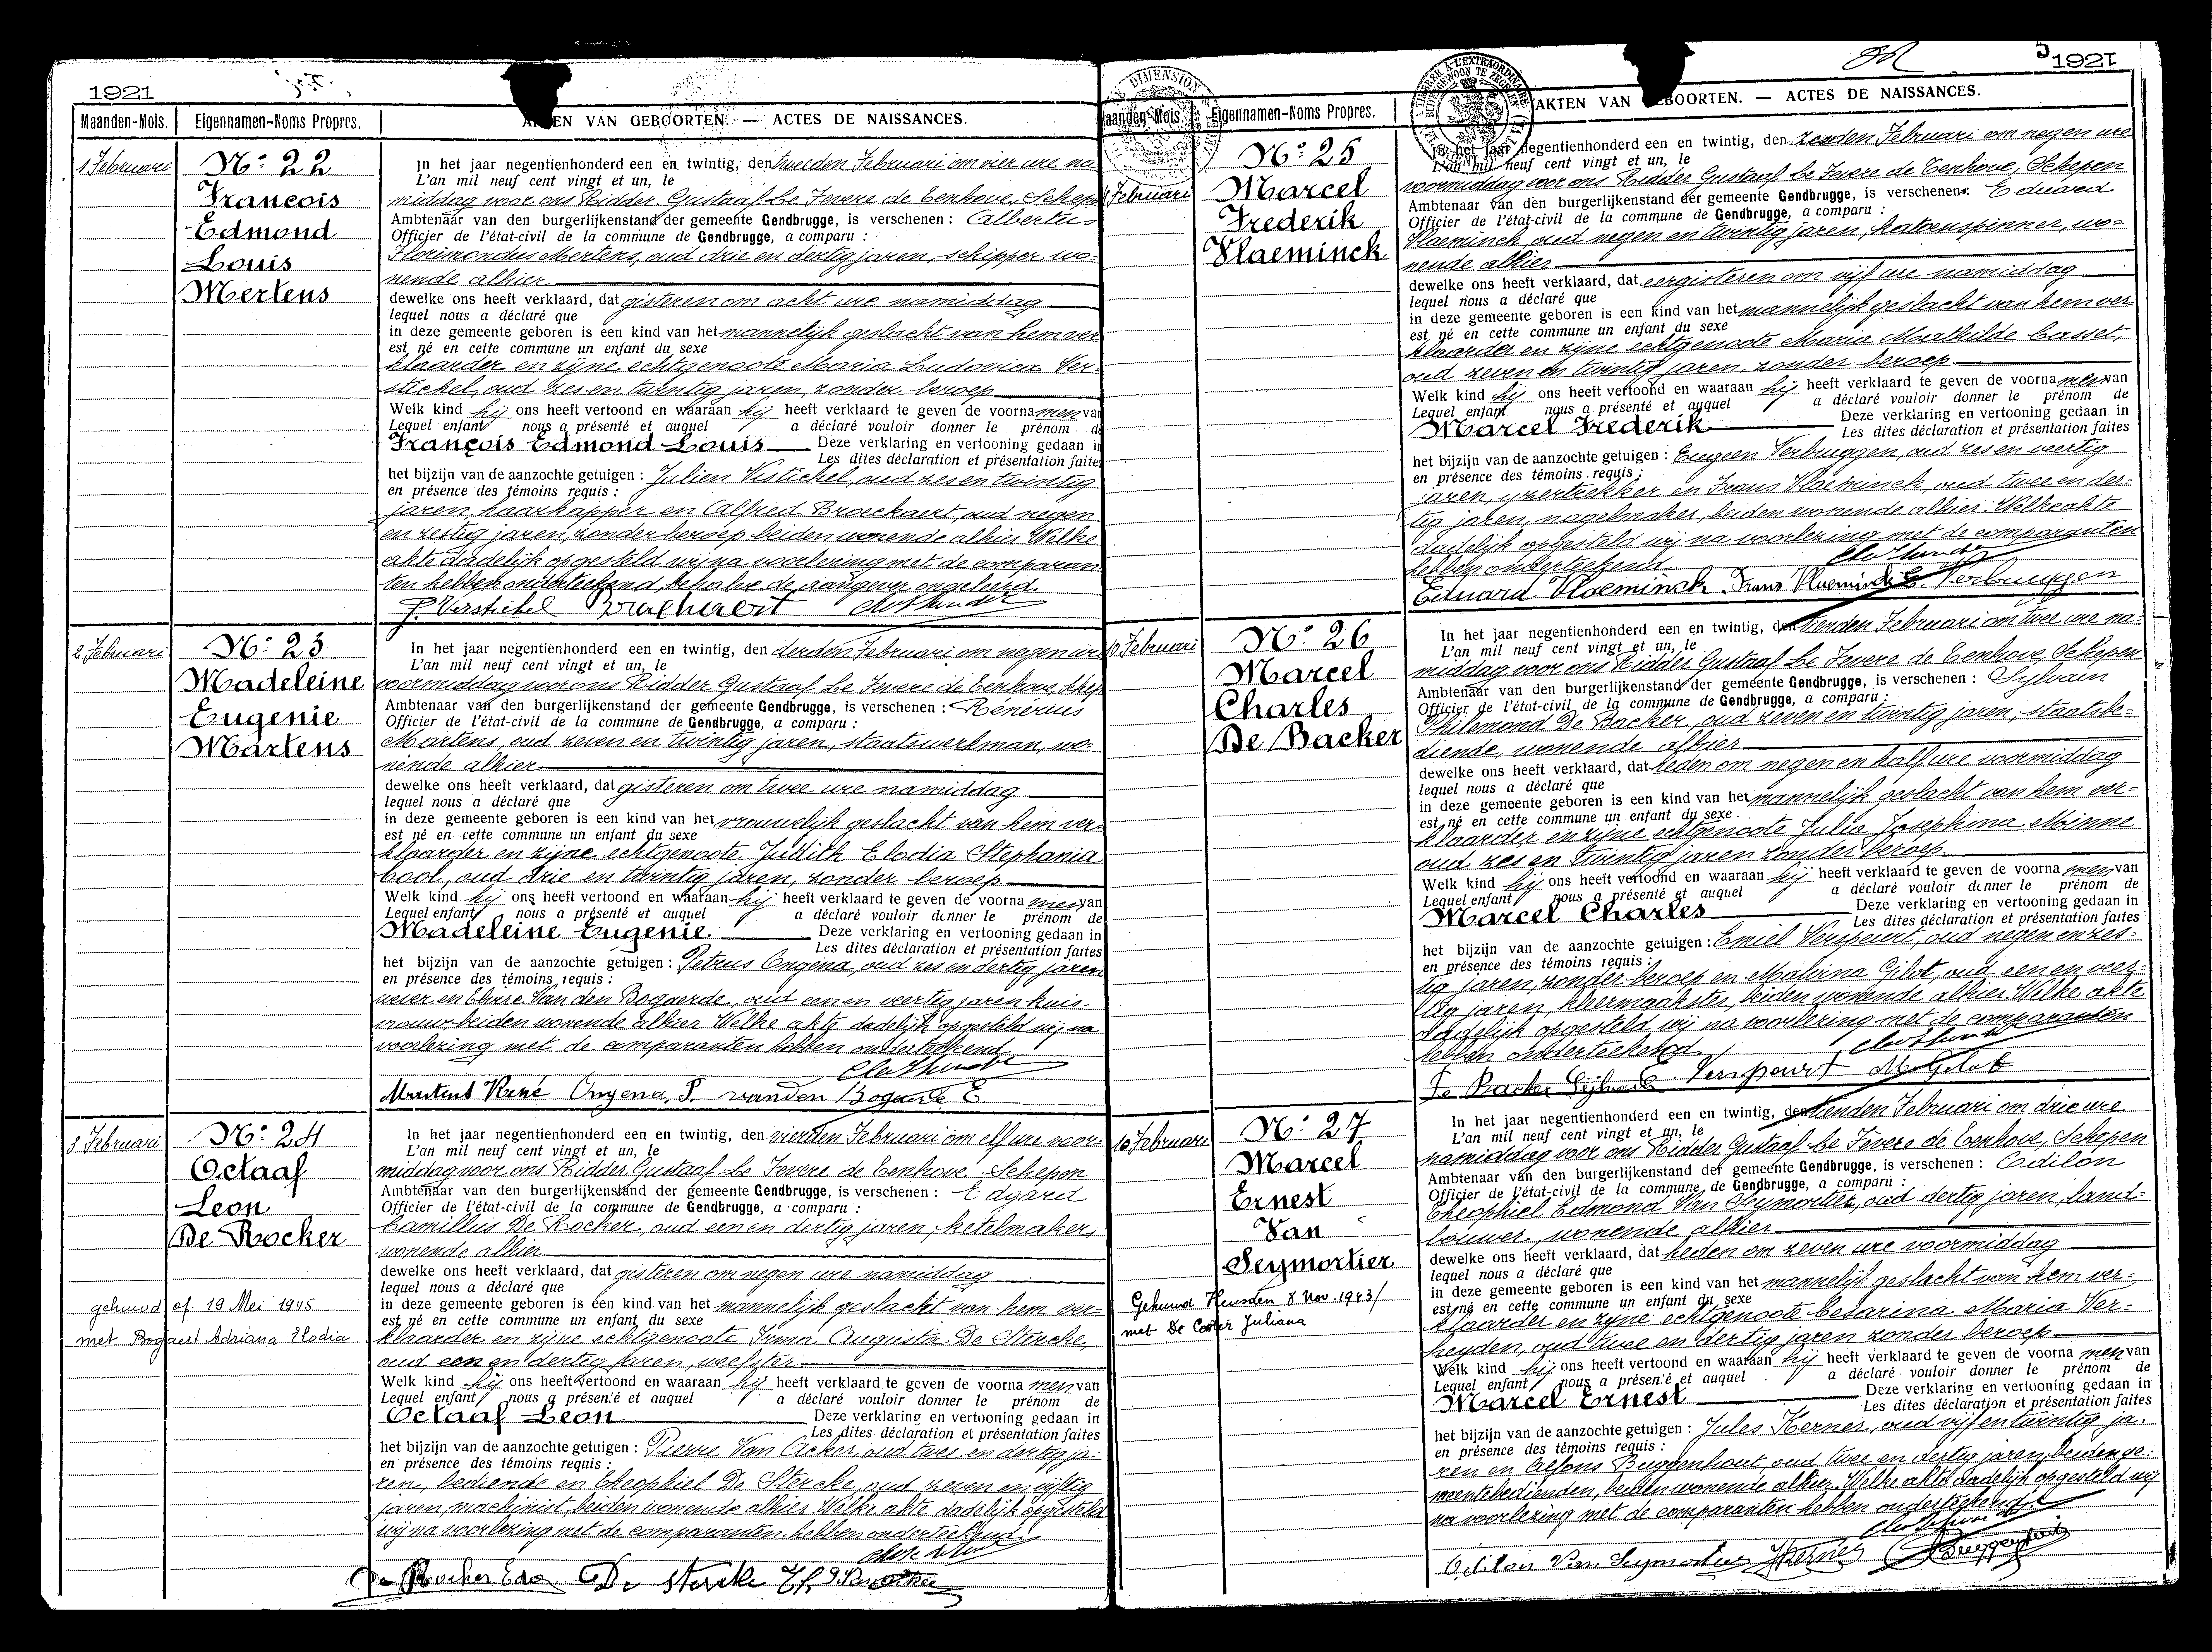 1921
Maanden-Mois. Eigennamen-Noms Propres. AKTEN VAN GEBOORTEN. — ACTES DE NAISSANCES.
1 Februari
Nº 22
François
Edmond
Louis
Mertens
In het jaar negentienhonderd een en twintig, den tweeden Februari om vier ure na
L'an mil neuf cent vingt et un, le
middag voor ons Ridder Gustaaf Le Fevere de Tenhove, Schepen
Ambtenaar van den burgerlijkenstand der gemeente Gendbrugge, is verschenen : Albertus
Officier de l'état-civil de la commune de Gendbrugge, a comparu :
Florimondus Mertens, oud drie en dertig jaren, schipper, wo-
nende alhier
dewelke ons heeft verklaard, dat gisteren om acht ure namiddag
lequel nous a déclaré que
in deze gemeente geboren is een kind van het mannelijk geslacht van hem ver
est né en cette commune un enfant du sexe
klaarder en zijne echtgenoote Maria Ludovica Ver-
stichel, oud zes en twintig jaren, zonder beroep
Welk kind hij ons heeft vertoond en waaraan hij heeft verklaard te geven de voornamen van
Lequel enfant nous a présenté et auquel a déclaré vouloir donner le prénom de
François Edmond Louis Deze verklaring en vertooning gedaan in
Les dites déclaration et présentation faites
het bijzijn van de aanzochte getuigen : Julien Vestichel, oud zes en twintig
en présence des témoins requis :
jaren, haarkapper en Alfred Braeckaert, oud negen
en zestig jaren, zonder beroep beiden wonende alhier Welke
akte dadelijk opgesteld wij na voorlezing met de comparan
ten hebben onderteekend, behalve de aangever ongeleerd.
J. Verstichel Braeckaert
2 Februari
Nº 23
Madeleine
Eugenie
Martens
In het jaar negentienhonderd een en twintig, den derden Februari om negen ure
L'an mil neuf cent vingt et un, le
voormiddag voor ons Ridder Gustaaf Le Fevere de Tenhove, Schep
Ambtenaar van den burgerlijkenstand der gemeente Gendbrugge, is verschenen : Rénérius
Officier de l'état-civil de la commune de Gendbrugge, a comparu :
Martens, oud zeven en twintig jaren, staatswerkman, wo-
nende alhier
dewelke ons heeft verklaard, dat gisteren om twee ure namiddag
lequel nous a déclaré que
in deze gemeente geboren is een kind van het vrouwelijk geslacht van hem ver-
est né en cette commune un enfant du sexe
klaarder en zijne echtgenoote Judith Elodia Stephania
Cool, oud drie en twintig jaren, zonder beroep
Welk kind hij ons heeft vertoond en waaraan hij heeft verklaard te geven de voornamen van
Lequel enfant nous a présenté et auquel a déclaré vouloir donner le prénom de
Madeleine Eugenie. Deze verklaring en vertooning gedaan in
Les dites déclaration et présentation faites
het bijzijn van de aanzochte getuigen : Petrus Ongena, oud zes en dertig jaren
en présence des témoins requis :
wever en Elvire Van den Bogaerde, oud een en veertig jaren huis-
vrouw beiden wonende alhier Welke akte dadelijk opgesteld wij na
voorlezing met de comparanten hebben onderteekend
Martens René Ongena, P. vanden Bogaerde E.
3 Februari
Nº 24
Octaaf
Leon
De Rocker
gehuwd of. 19 Mei 1945
met Bogaert Adriana Elodia
In het jaar negentienhonderd een en twintig, den vierden Februari om elf ure voor-
L'an mil neuf cent vingt et un, le
middag voor ons Ridder Gustaaf Le Fevere de Tenhove Schepen
Ambtenaar van den burgerlijkenstand der gemeente Gendbrugge, is verschenen : Edgard
Officier de l'état-civil de la commune de Gendbrugge, a comparu :
Camillus De Rocker, oud een en dertig jaren, ketelmaker,
wonende alhier
dewelke ons heeft verklaard, dat gisteren om negen ure namiddag
lequel nous a déclaré que
in deze gemeente geboren is een kind van het mannelijk geslacht van hem ver-
est né en cette commune un enfant du sexe
klaarder en zijne echtgenoote Irma Augusta De Stercke,
oud een en dertig jaren, weefster
Welk kind hij ons heeft vertoond en waaraan hij heeft verklaard te geven de voornamen van
Lequel enfant nous a présenté et auquel a déclaré vouloir donner le prénom de
Octaaf Leon Deze verklaring en vertooning gedaan in
Les dites déclaration et présentation faites
het bijzijn van de aanzochte getuigen : Pierre Van Acker, oud twee en dertig ja-
en présence des témoins requis :
ren, bediende en Theophiel De Stercke, oud zeven en vijftig
jaren, machinist, beiden wonende alhier Welke akte dadelijk opgesteld
wij na voorlezing met de comparanten hebben onderteekend.
De Rocker Edg. De Stercke Th. P. Van Acker
1921
Maanden-Mois. Eigennamen-Noms Propres. AKTEN VAN GEBOORTEN. — ACTES DE NAISSANCES.
4 Februari
Nº 25
Marcel
Frederik
Vlaeminck
In het jaar negentienhonderd een en twintig, den zesden Februari om negen ure
L'an mil neuf cent vingt et un, le
voormiddag voor ons Ridder Gustaaf Le Fevere de Tenhove, Schepen
Ambtenaar van den burgerlijkenstand der gemeente Gendbrugge, is verschenen : Eduard
Officier de l'état-civil de la commune de Gendbrugge, a comparu :
Vlaeminck, oud negen en twintig jaren, katoenspinner, wo-
nende alhier
dewelke ons heeft verklaard, dat eergisteren om vijf ure namiddag
lequel nous a déclaré que
in deze gemeente geboren is een kind van het mannelijk geslacht van hem ver-
est né en cette commune un enfant du sexe
klaarder en zijne echtgenoote Maria Mathilde Casset,
oud zeven en twintig jaren, zonder beroep
Welk kind hij ons heeft vertoond en waaraan hij heeft verklaard te geven de voornamen van
Lequel enfant nous a présenté et auquel a déclaré vouloir donner le prénom de
Marcel Frederik Deze verklaring en vertooning gedaan in
Les dites déclaration et présentation faites
het bijzijn van de aanzochte getuigen : Eugeen Verbruggen, oud zes en veertig
en présence des témoins requis :
jaren, ijzertrekker en Frans Vlaeminck, oud twee en der-
tig jaren, nagelmaker, beiden wonende alhier. Welke akte
dadelijk opgesteld wij na voorlezing met de comparanten
hebben onderteekend.
Eduard Vlaeminck. Frans Vlaeminck E. Verbruggen
10 Februari
Nº 26
Marcel
Charles
De Backer
In het jaar negentienhonderd een en twintig, den tienden Februari om twee ure na-
L'an mil neuf cent vingt et un, le
middag voor ons Ridder Gustaaf Le Fevere de Tenhove, Schepen
Ambtenaar van den burgerlijkenstand der gemeente Gendbrugge, is verschenen : Sylvain
Officier de l'état-civil de la commune de Gendbrugge, a comparu :
Philemond De Backer, oud zeven en twintig jaren, staatsbe-
diende, wonende alhier
dewelke ons heeft verklaard, dat heden om negen en half ure voormiddag
lequel nous a déclaré que
in deze gemeente geboren is een kind van het mannelijk geslacht van hem ver-
est né en cette commune un enfant du sexe
klaarder en zijne echtgenoote Julia Josephina Minne
oud zes en twintig jaren zonder beroep.
Welk kind hij ons heeft vertoond en waaraan hij heeft verklaard te geven de voornamen van
Lequel enfant nous a présenté et auquel a déclaré vouloir donner le prénom de
Marcel Charles Deze verklaring en vertooning gedaan in
Les dites déclaration et présentation faites
het bijzijn van de aanzochte getuigen : Emiel Verspeurt, oud negen en zes-
en présence des témoins requis :
tig jaren, zonder beroep en Malvina Gilot, oud een en veer-
tig jaren, kleermaakster, beiden wonende alhier. Welke akte
dadelijk opgesteld wij na voorlezing met de comparanten
hebben onderteekend.
De Backer Verspeurt M. Gilot
10 Februari
Nº 27
Marcel
Ernest
Van
Seymortier
Gehuwd Heusden 8 Nov. 1943/
met De Coster Juliana
In het jaar negentienhonderd een en twintig, den tienden Februari om drie ure
L'an mil neuf cent vingt et un, le
namiddag voor ons Ridder Gustaaf Le Fevere de Tenhove, Schepen
Ambtenaar van den burgerlijkenstand der gemeente Gendbrugge, is verschenen : Odilon
Officier de l'état-civil de la commune de Gendbrugge, a comparu :
Theophiel Edmond Van Seymortier, oud dertig jaren, land-
bouwer, wonende alhier
dewelke ons heeft verklaard, dat heden om zeven ure voormiddag
lequel nous a déclaré que
in deze gemeente geboren is een kind van het mannelijk geslacht van hem ver-
est né en cette commune un enfant du sexe
klaarder en zijne echtgenoote Cesarina Maria Ver-
heyden, oud twee en dertig jaren zonder beroep
Welk kind hij ons heeft vertoond en waaraan hij heeft verklaard te geven de voornamen van
Lequel enfant nous a présenté et auquel a déclaré vouloir donner le prénom de
Marcel Ernest Deze verklaring en vertooning gedaan in
Les dites déclaration et présentation faites
het bijzijn van de aanzochte getuigen : Jules Herner, oud vijf en twintig ja-
en présence des témoins requis :
ren en Alfons Buggenhout, oud twee en dertig jaren, beiden ge-
meentebedienden, beiden wonende alhier. Welke akte dadelijk opgesteld wij
na voorlezing met de comparanten hebben onderteekend.
Odilon Van Seymortier JHerner